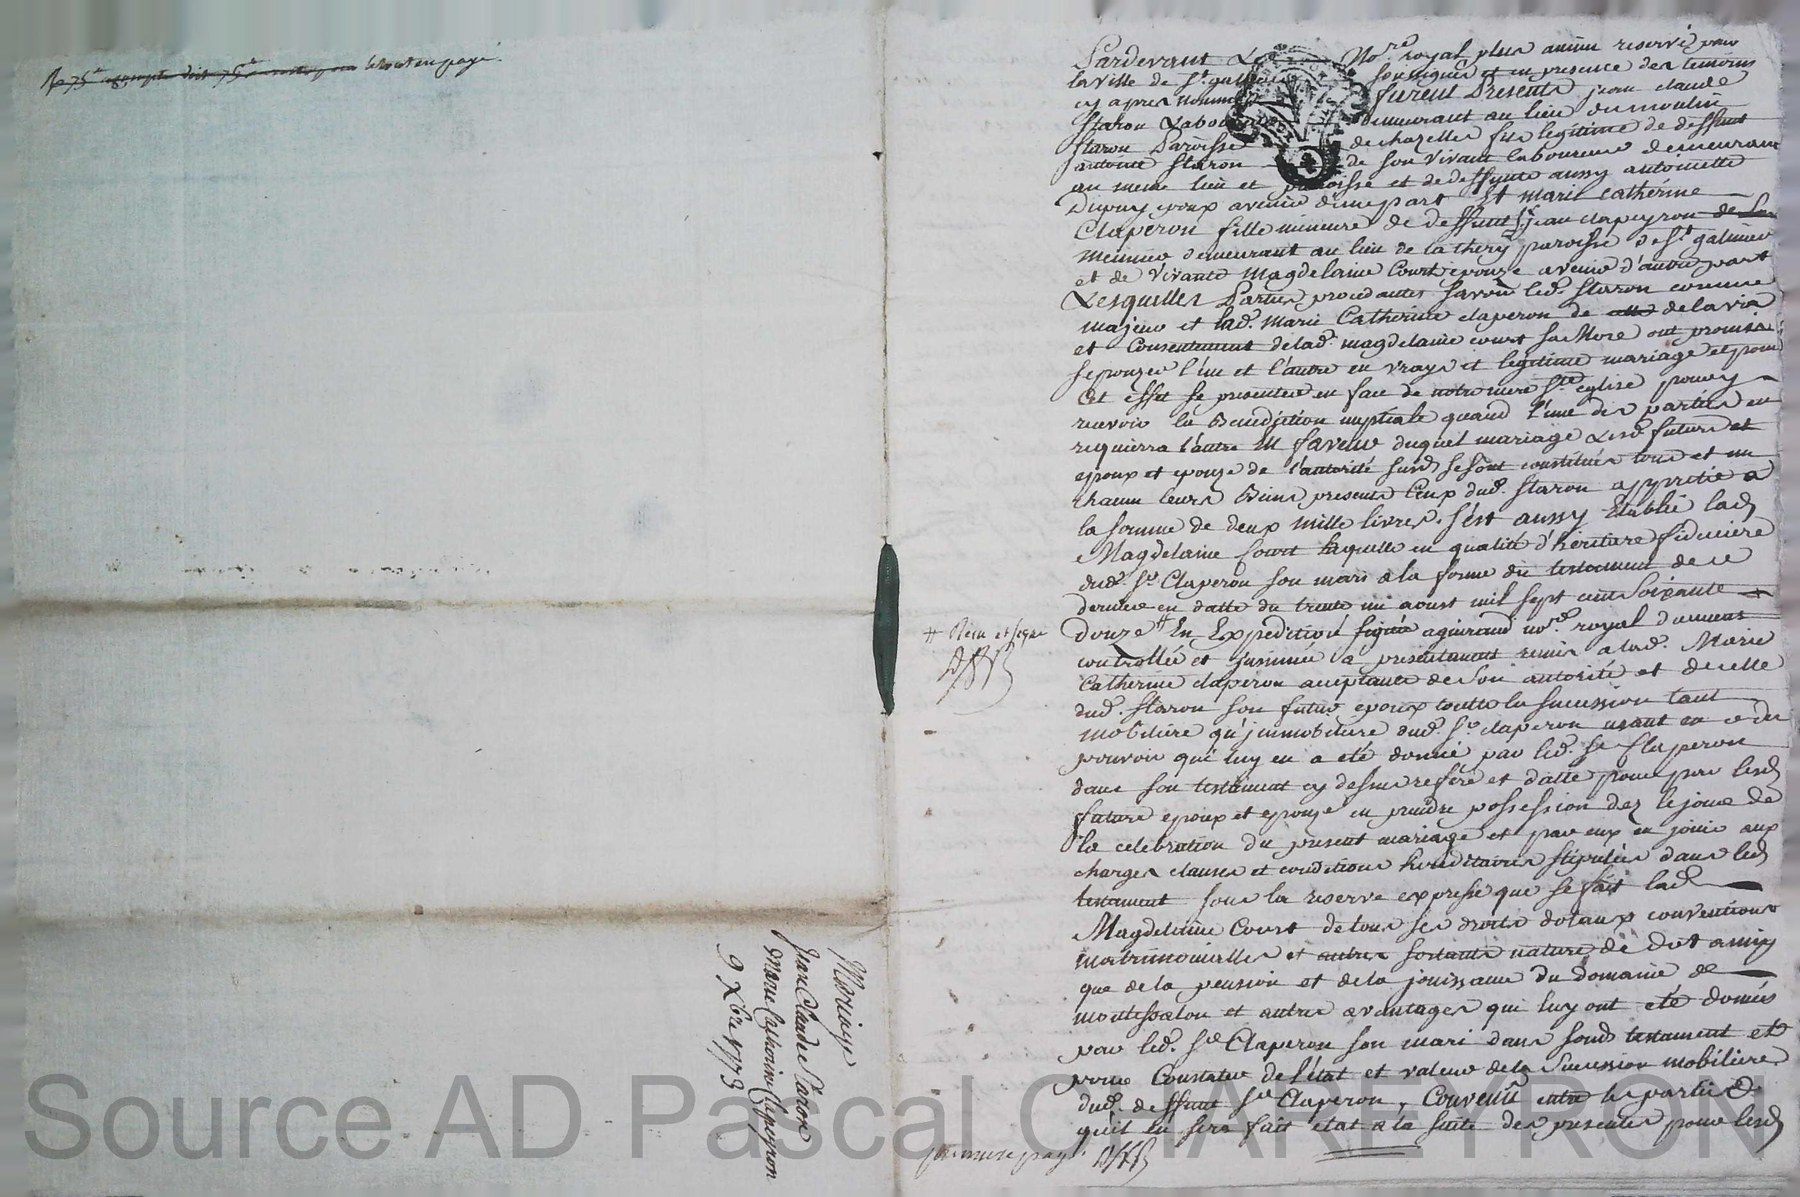 le tout en payé.
Mariage
Jean Claude Staron
Marie Catherine Clapeyron
9 Xbre 1773
Pardevant Le Nore. royal plus ancien reservé pour
la ville de St galmier soussigné et en presence des temoins
cy apres nommés furent Presents jean claude
Staron Laboureur demeurant au lieu du moulin
Staron Paroisse de chazelles fils legitime de deffunt
antoine Staron de son vivant laboureur demeurant
au meme lieu et paroisse et de deffunte aussy antoinette
Dupuy epoux avenir d'une part Et marie Catherine
Claperon fille mineure de deffunt Sr. jean clapeyron
meunier demeurant au lieu de la thery paroisse de St galmier
et de vivante Magdelaine Court epouze avenir d'autre part
Lesquelles Parties procedantes savoir led. Staron comme
majeur et lad. Marie Catherine claperon de de lavis
et Consentement de lad. magdelaine court sa Mere ont promis
se pouzer l'un et l'autre en vray et legitime mariage et pour
Cet effet se presenter en face de notre mere Ste. eglise pour y
recevoir la Benediction nuptiale quand l'une des parties en
requierra l'autre En faveur duquel mariage Lesd. futurs
epoux et epouze de l'autorité susd. se sont constitués tous et un
chacun leurs Biens presents Ceux dud. Staron appretié a
la somme de deux mille livres. S'est aussy Etablie lad.
Magdelaine Court laquelle en qualité d'heritiere fiduciere
dud. Sr. Claperon son mari a la forme du testament de ce
dernier en datte du trente un aoust mil sept cent Soixante
Douze # En Expedition signée agniraud nore. royal Duement
# Recu et signé
controllée et insinuée a presentement remis a lad. Marie
Catherine claperon acceptante de Son autorité et de celle
dud. Staron son futur epoux toute la succession tant
mobiliere qu'immobiliere dud. Sr. claperon usant en ce du
pouvoir qui luy en a eté donné par led. Sr Claperon
dans son testament cy dessus referé et datté pour par lesd.
futurs epoux et epouze en prendre possession dez le jour de
la celebration du present mariage et par eux en jouir aux
charges clauses et conditions hereditaires stipulées dans led.
testament sous la reserve expresse que se fait lad.
Magdelaine Court de tous ses droits dotaux conventions
matrimonialles et autres sortants nature de Dot ainsy
que de la pension et de la jouissance du Domaine de
montessalou et autres avantages qui luy ont eté donnés
par led. Sr Claperon son mari dans sond. testament et
pour Constater de l'état et valeur de la Succession mobiliere
dud. deffunt Sr Claperon, Convenu entre les parties
qu'il en sera fait etat a la suite des presentes pour lesd.
premiere page
Source AD Pascal CHAREYRON